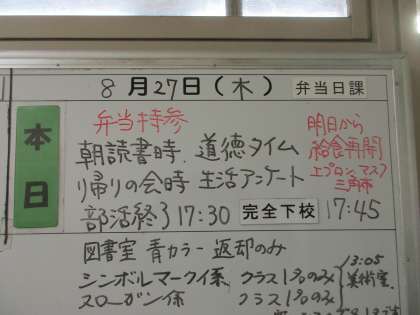 8月27日(木) 弁当日課
本日
弁当持参
朝読書時、道徳タイム
帰りの会時 生活アンケート
部活終了17:30 完全下校 17:45
明日から
給食再開
エプロン マスク
三角巾
図書室 青カラー 返却のみ
シンボルマーク係 クラス1名のみ
スローガン係 クラス1名のみ
13:05
美術室